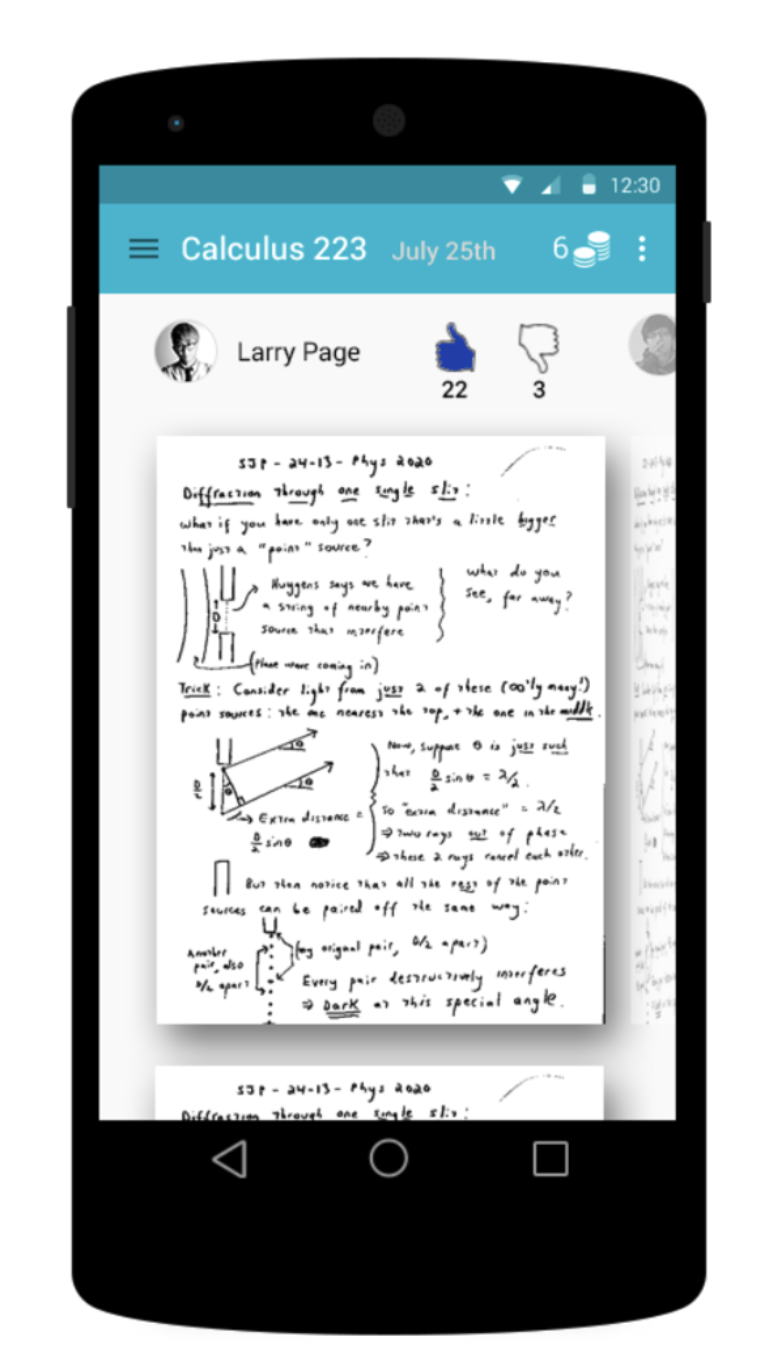 12:30
Calculus 223 July 25th 6
Larry Page
22 3
SJP - 24-13 - Phys 2020
Diffraction through one single slit:
What if you have only one slit that's a little bigger
than just a "point" source?
Huygens says we have
a string of nearby point
source that interfere
D
what do you
see, far away?
(Plane wave coming in)
Trick: Consider light from just 2 of these (∞'ly many!)
point sources: the one nearest the top, + the one in the middle.
θ
θ
θ
D/2
Extra distance =
D/2 sinθ
Now, suppose θ is just such
that D/2 sinθ = λ/2.
So "extra distance" = λ/2
⇒ two rays out of phase
⇒ these 2 rays cancel each other.
But then notice that all the rest of the point
sources can be paired off the same way:
Another
pair, also
D/2 apart
(my original pair, D/2 apart)
Every pair destructively interferes
⇒ Dark at this special angle.
SJP - 24-13 - Phys 2020
Diffraction through one single slit: